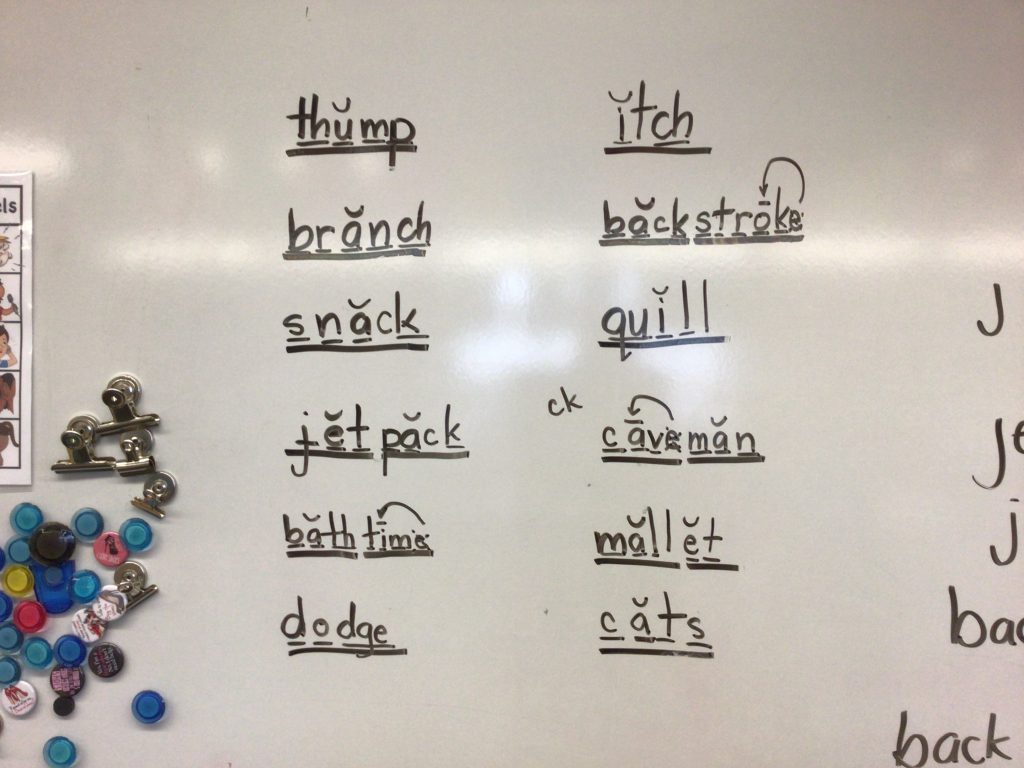 els
thŭmp
brănch
snăck
jĕtpăck
băthtīme
dodge
ĭtch
băckstrōke
quĭll
ck
cāvemăn
măllĕt
căts
J
je
j
bac
back